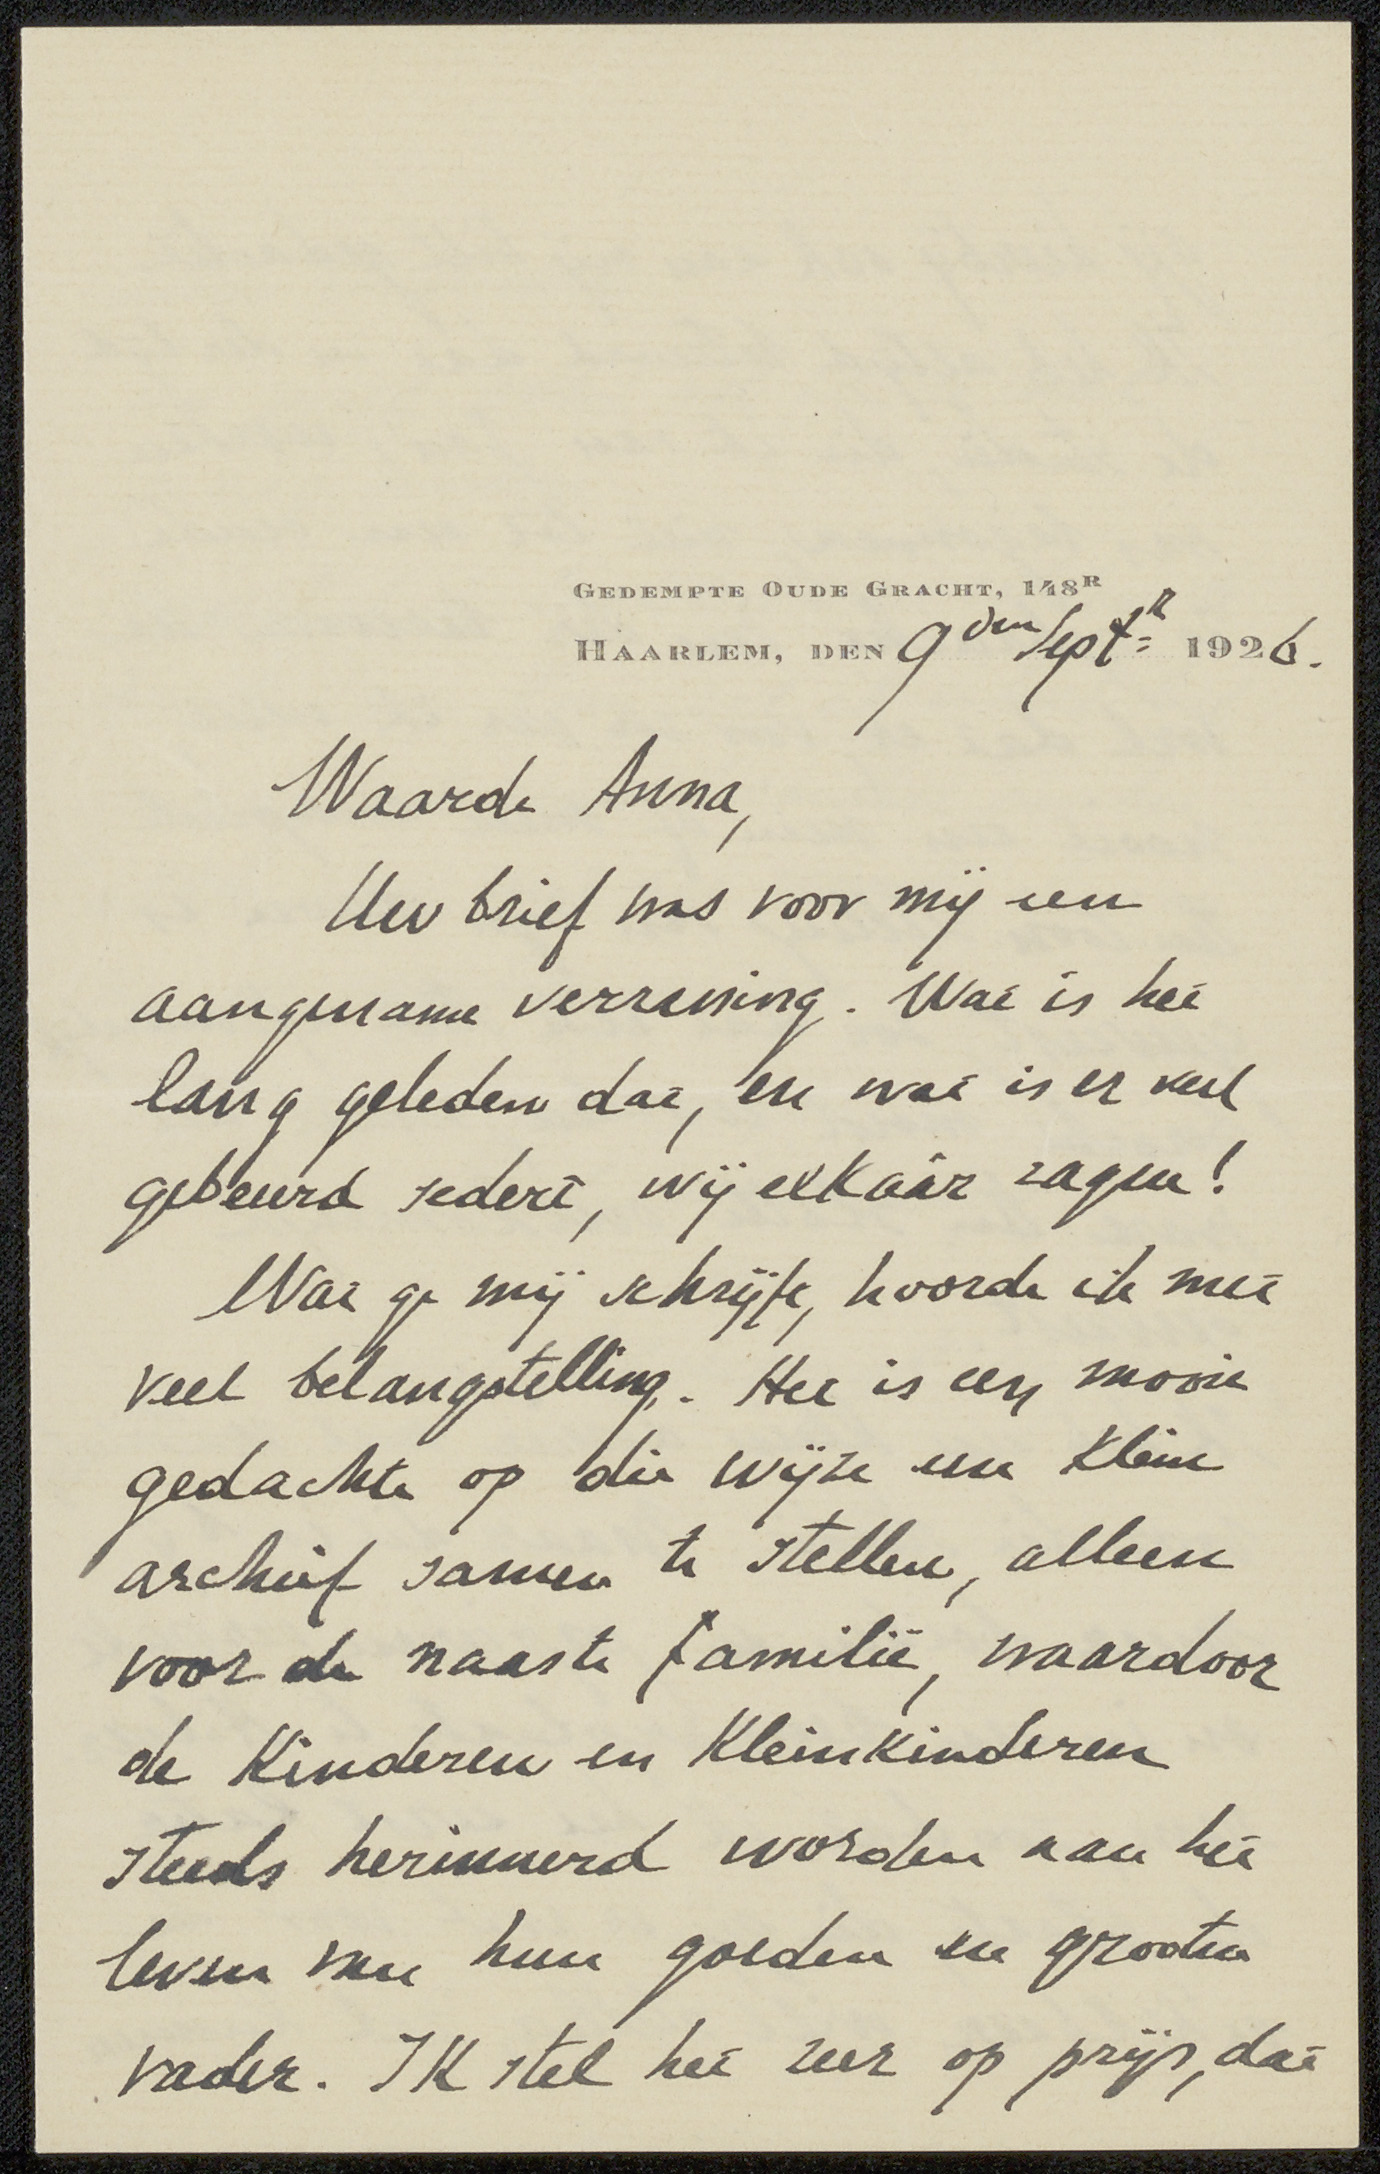 GEDEMPTE OUDE GRACHT, 148R
HAARLEM, DEN 9den Septr 1926.
Waarde Anna,
Uw brief was voor mij een
aangename verrassing. Wat is het
lang geleden dat, en wat is er veel
gebeurd sedert, wij elkaâr zagen!
Wat ge mij schrijft, hoorde ik met
veel belangstelling. Het is een mooie
gedachte op die wijze een klein
archief samen te stellen, alleen
voor de naaste familie, waardoor
de Kinderen en Kleinkinderen
steeds herinnerd worden aan het
leven van hun goeden en grooten
vader. Ik stel het zeer op prijs, dat